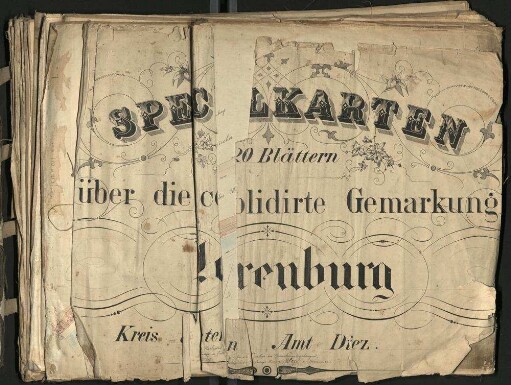 SPEC LKARTEN
20 Blättern
über die co olidirte Gemarkung
renburg
Kreis Amt Diez.